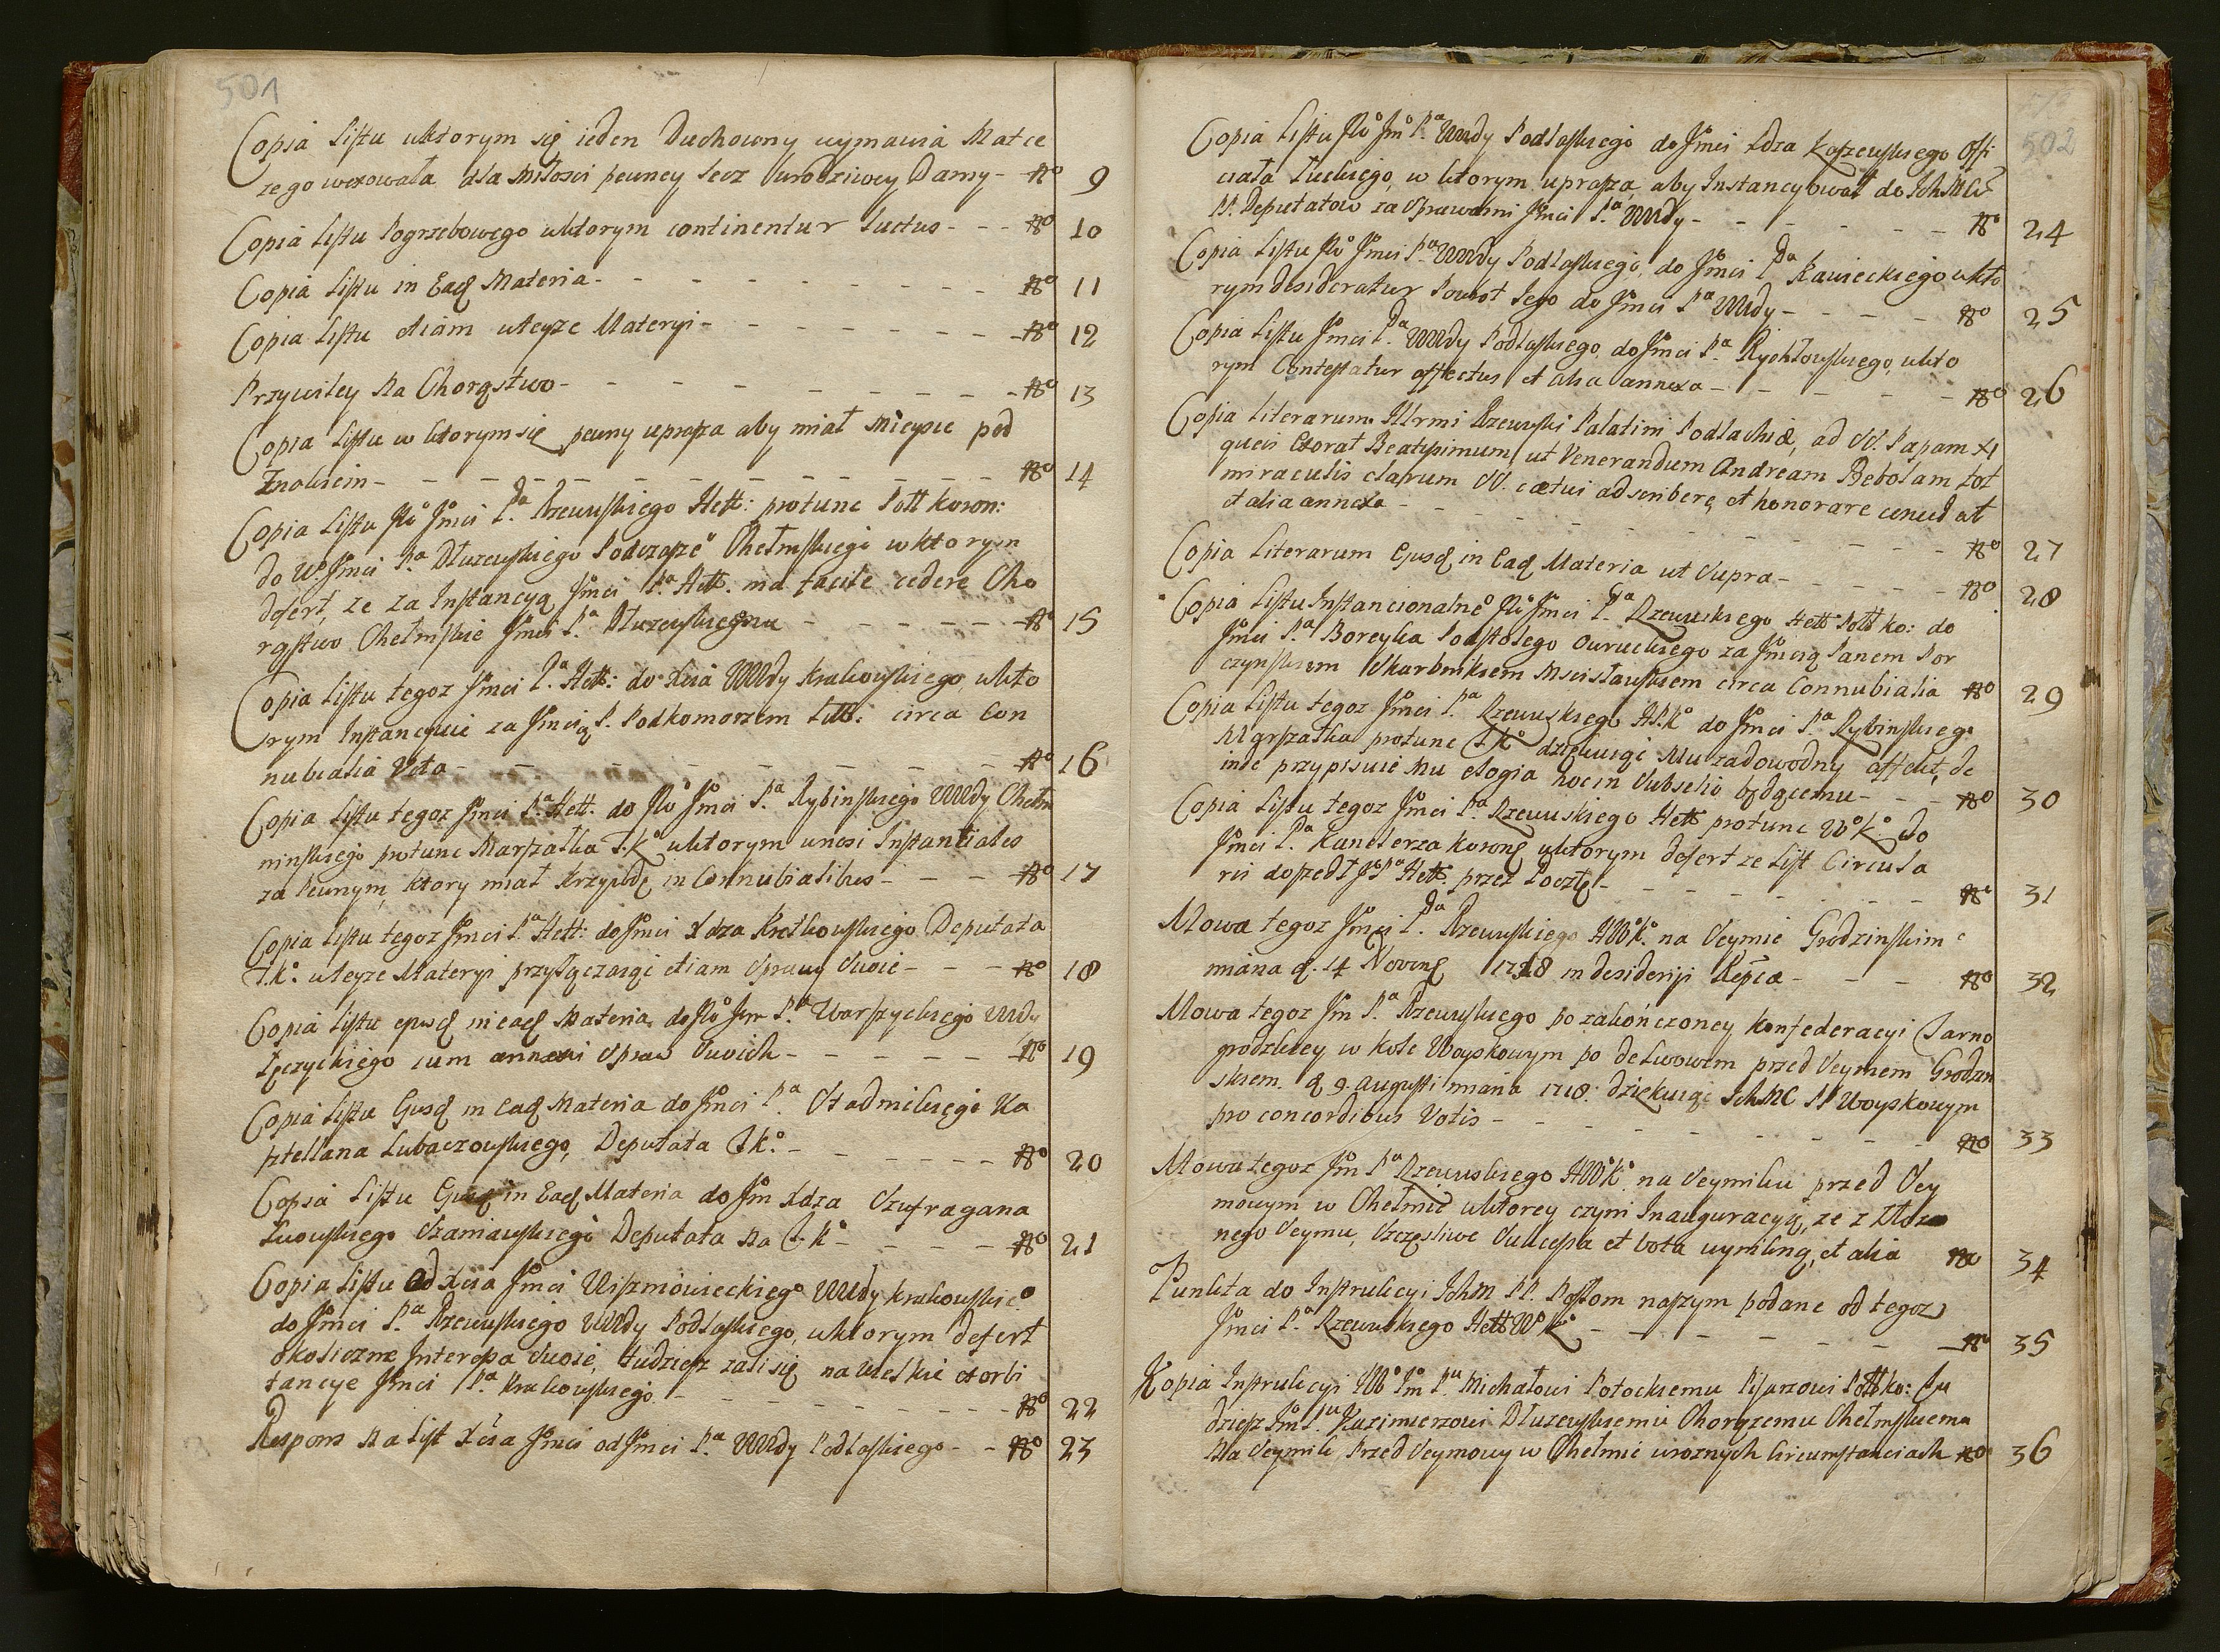 501
Copia Listu wktorym się ieden Duchowny wymawia Matce
zego wexowała dla miłosci pewney lecz Urodziwey Damy - No 9
Copia Listu Pogrzebowego wktorym continentur Luctus - - - No 10
Copia Listu in Eadq Materia - - - - - - - No 11
Copia Listu etiam wteyze Materyi - - - - - - - No 12
Przywiley Na Chorąstwo - - - - - - - No 13
Copia Listu w ktorym się pewny uprasza aby miał mieysce pod
Znakiem - - - - - - - No 14
Copia Listu JWo Jmci Pa Rzewuskiego Hett: protunc Poll koron:
do Wo Jmci Pa Dłuzewskiego Podczaszo Chełmskiego wktorym
defert, ze za Instancyą Jmci Pa Hett. ma facile cedere Cho
rąstwo Chełmskie Jmci Pa Dłuzewskiemu - - - - - No 15
Copia Listu tegoz Jmci Pa Hett: do Xcia WWdy Krakowskiego, wkto
rym Instancyuie za Jmcią P. Podkomorzem Litt: circa Con
nubialia Vota - - - - - - - No 16
Copia Listu tegoz Jmci Pa Hett. do JWo Jmci Pa Rybinskiego WWdy Chełm
minskiego protunc Marszałka T.Ko wktorym wnosi Instantiales
za Pewnym, ktory miał Krzywdę in Connubialibus - - - No 17
Copia Listu tegoz Jmci Pa Hett: do Jmci Xdza Kretkowskiego Deputata
T.Ko. wteyze Materyi przyłączaiąc etiam Sprawy Swoie - - - No 18
Copia Listu ejusdq in eadq Materia do JWo Jm Pa Warszyckiego WWdy
Łęczyckiego cum annexis Spraw Swoich - - - - - No 19
Copia Listu Ejusdq in Eadq Materia do Jmci Pa Stadnickiego Ka
sztellana Lubaczowskiego, Deputata T.Ko. - - - - - No 20
Copia Listu Ejusdq in Eadq Materia do Jm Xdza Szufragana
Lwowskiego Szaniawskiego Deputata na T.Ko - - - - No 21
Copia Listu Od Xcia Jmci Wiszniowieckiego WWdy krakowskieo
do Jmci Pa Rzewuskiego WWdy Podlaskiego, wktorym defert
okoliczne Interessa Swoie, tudziesz zali się na wielkie exorbi
tancye Jmci Pa Krakowskiego - - - - - - - No 22
Respons na List Xcia Jmci od Jmci Pa WWdy Podlaskiego - - No 23
502
Copia Listu JWo Jmo Pa WWdy Podlaskiego do Jmci Xdza Koszewskiego Offi
ciała Łuckiego, w ktorym uprasza, aby Instancyował do Ichmciow
PP. Deputatow za Sprawami Jmci Pa WWdy - - - - - No 24
Copia Listu JWo Jmci Pa WWdy Podlaskiego, do Jmci Pa Kawieckiego wkto
rym desideratur Powrot Jego do Jmci Pa WWdy - - - - No 25
Copia Listu Jmci Pa WWdy Podlaskiego, do Jmci Pa Rychłowskiego, wkto
rym Contestatur affectus et alia annexa - - - - - No 26
Copia Literarum Illrmi Rzewuski Palatini Podlachiæ, ad SS. Papam XI
queis Exorat Beatissimum, ut Venerandum Andream Bobolam tot
miraculis clarum SS. cœtui adscribere, et honorare conced at
et alia annexa - - - - - - - No 27
Copia Literarum Ejusdq in Eadq Materia ut Supra - - - - No 28
Copia Listu Instancionalneo JWo Jmci Pa Rzewuskiego Hett Poll ko: do
Jmci Pa Boreyka Podstolego Owruckiego za Jmcią Panem Por
czynskiem Skarbnikiem Mscisławskiem circa Connubialia No 29
Copia Listu tegoz Jmci Pa Rzewuskiego H.P.Ko do Jmci Pa Rybinskiego
Margrszałka protunc T.Ko dziękuiąc Mu zadowodny affekt, de
inde przypisuie Mu elogia hocin Subselio będącemu - - - No 30
Copia Listu tegoz Jmci Pa Rzewuskiego Hett protunc Wo Ko. do
Jmci Pa Kanclerza Koronq wktorym defert ze List Circula
ris doszedł JPa Hett. przez Pocztę - - - - - - No 31
Mowa tegoz Jmci Pa Rzewuskiego HWKo. na Seymie Grodzinskim
miana d. 14 Novemq 1718 in desiderijs Reipcæ - - - No 32
Mowa tegoz Jm Pa Rzewuskiego po zakonczoney konfederacyi Tarno
grodzkiey w kole Woyskowym po de Lwowem przed Seymem Grodzin
skiem. d 9. augusti miana 1718. dziękuiąc Ichmc PP Woyskowym
pro concordibus Votis - - - - - - - No 33
Mowa tegoz Jm Pa Rzewuskiego HWKo na Seymiku przed Sey
mowym w Chełmie wktorey czyni Inauguracyą, ze z Złozo
nego Seymu, Szczęsliwe Successa et vota wynikną, et alia No 34
Punkta do Instrukcyi Ichm PP. Posłom naszym podane od tegoz
Jmci Pa Rzewuskiego Hett W Ko - - - - - - No 35
Kopia Instrukcyi Wo Jm Pu Michałowi Potockiemu Pisarzowi Poll ko: Tu
dziesz Jm Pu Kazimierzowi Dłuzewskiemu Chorązemu Chełmskiemu
Na Seymik Przed Seymowy w Chełmie wroznych Circumstanciach No 36